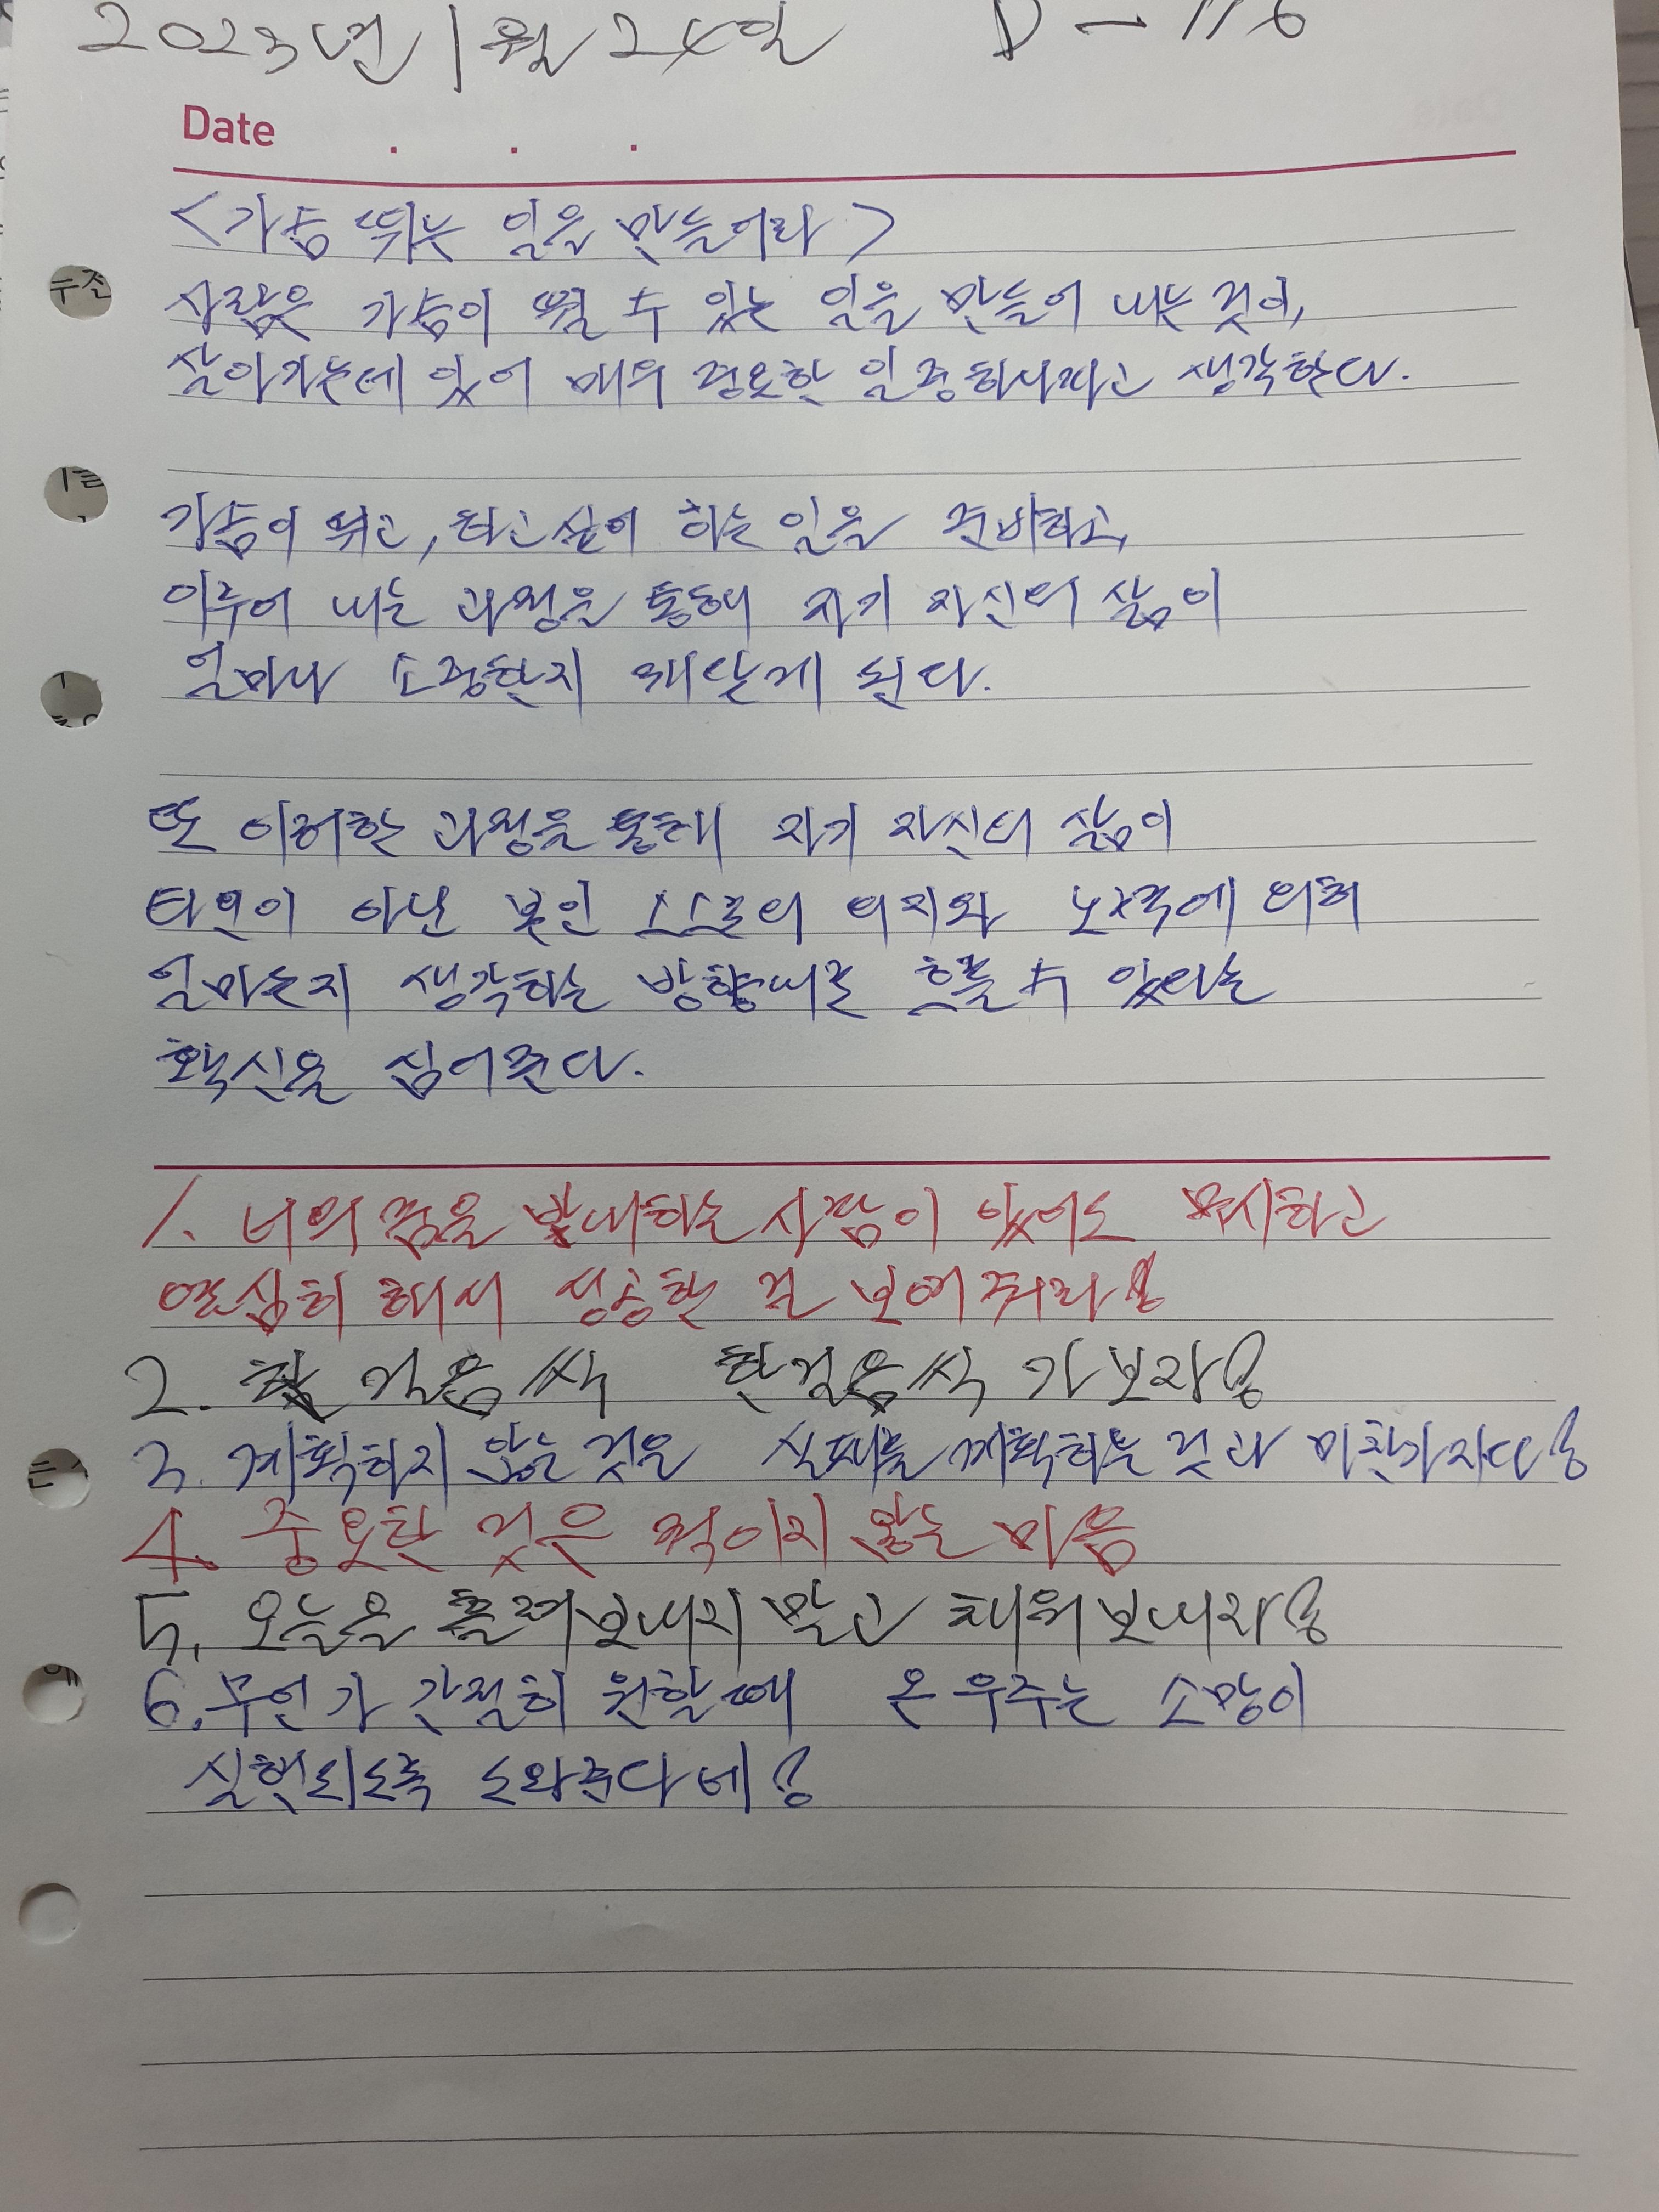 2023년 1월 24일 D-116
Date . . .
<가슴 뛰는 일을 만들어라>
사람은 가슴이 뛸 수 있는 일을 만들어 내는 것이,
살아가는데 있어 매우 중요한 일 중하나라고 생각한다.
가슴이 뛰고, 하고싶어 하는 일을 준비하고,
이루어 내는 과정을 통해 자기 자신의 삶이
얼마나 소중한지 깨닫게 된다.
또 이러한 과정을 통해 자기 자신의 삶이
타인이 아닌 본인 스스로의 의지와 노력에 의해
얼마든지 생각하는 방향대로 흐를 수 있다는
확신을 심어준다.
1. 너의 꿈을 반대하는 사람이 있어도 무시하고
열심히 해서 성공한 걸 보여줘라!
2. 한 걸음씩 한걸음씩 가보자!
3. 계획하지 않는 것은 실패를 계획하는 것과 미찬가지다!
4. 중요한 것은 꺽이지 않는 마음
5. 오늘을 흘려보내지 말고 채워보내라!
6. 무언가 간절히 원할때 온 우주는 소망이
실현되도록 도와준다네!